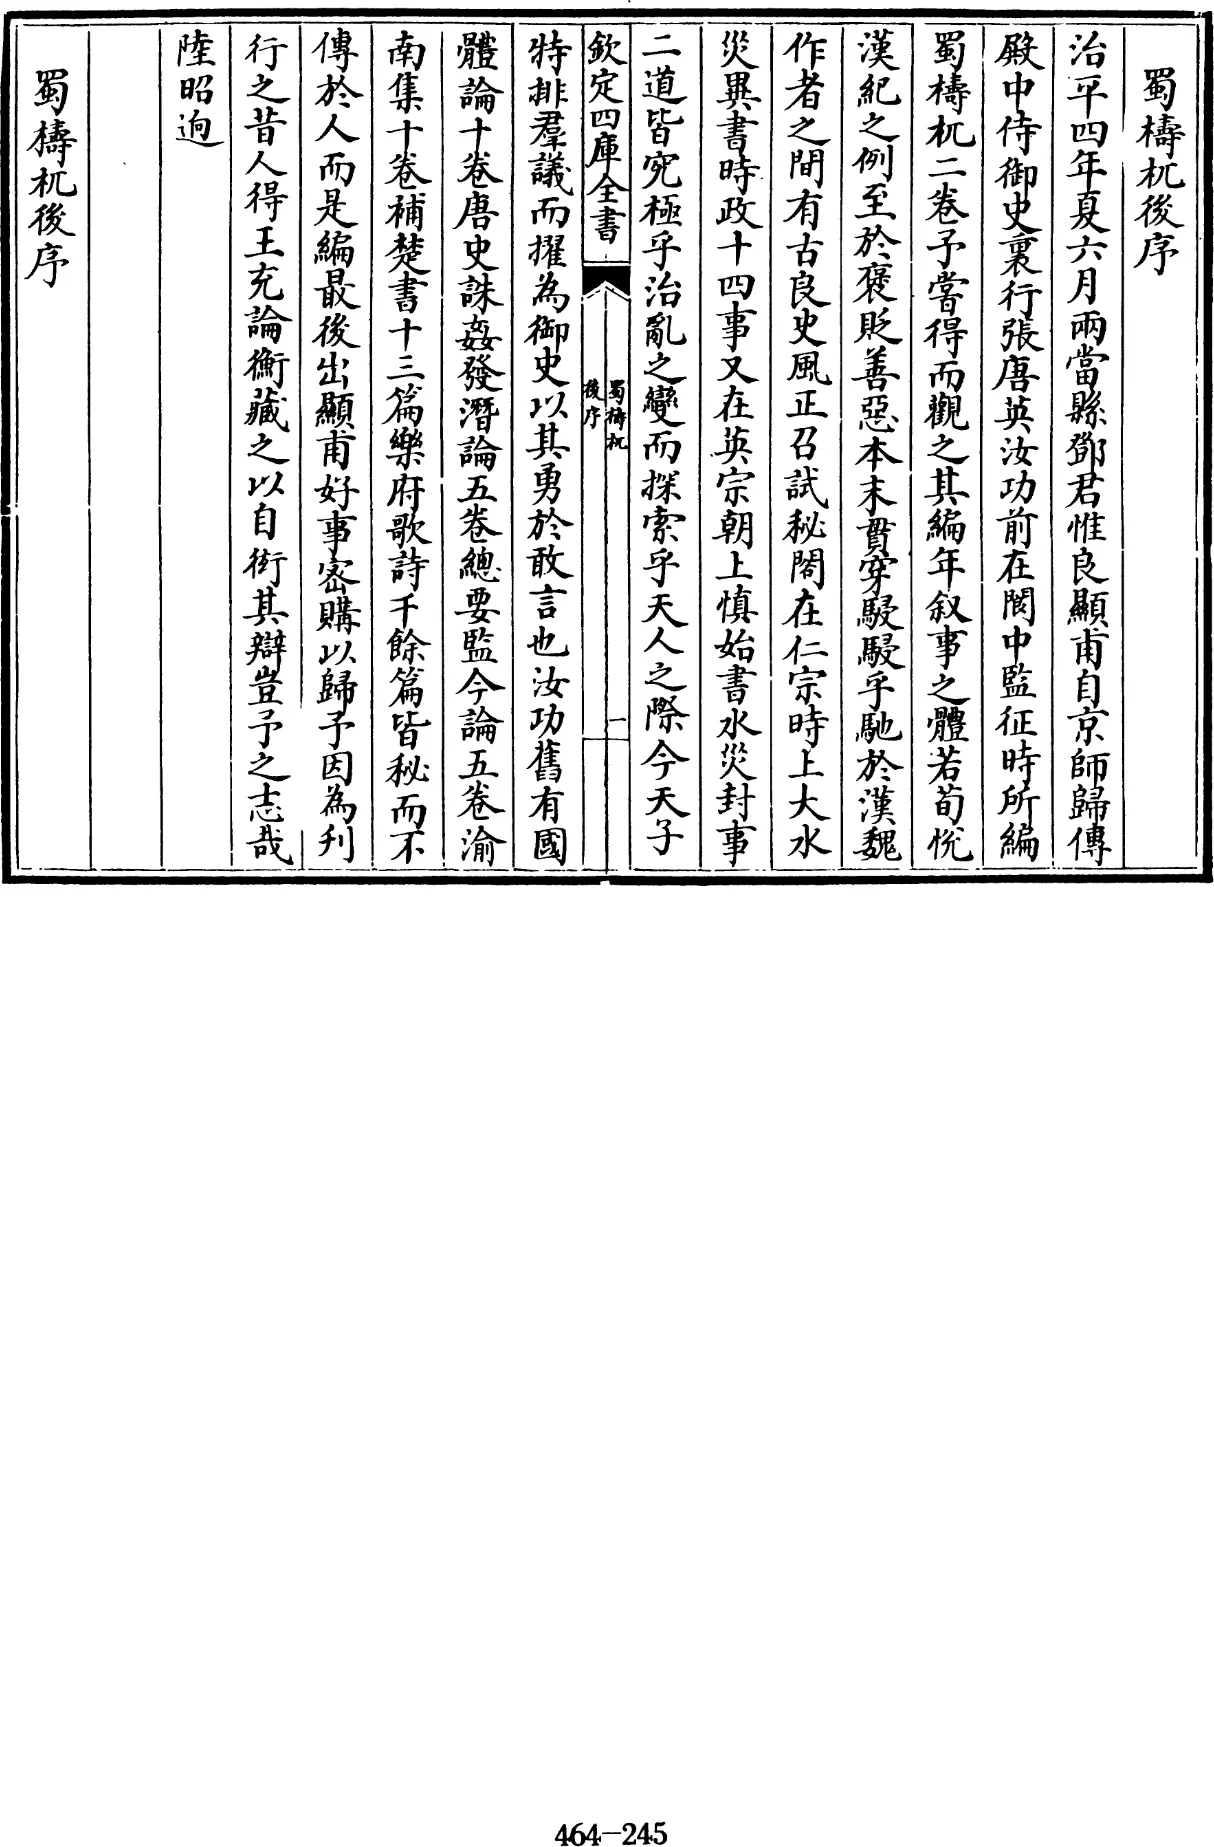 蜀檮杌後序
治平四年夏六月兩當縣鄧君惟良顯甫自京師歸傳
殿中侍御史裏行張唐英汝功前在閬中監征時所編
蜀檮杌二卷予嘗得而觀之其編年叙事之體若荀悅
漢紀之例至於褒貶善惡本末貫穿駸駸乎馳於漢魏
作者之間有古良史風正召試秘閣在仁宗時上大水
災異書時政十四事又在英宗朝上慎始書水災封事
二道皆究極乎治亂之變而探索乎天人之際今天子
欽定四庫全書
蜀檮杌
後序
一
特排羣議而擢為御史以其勇於敢言也汝功舊有國
體論十卷唐史誅姦發潛論五卷總要監今論五卷渝
南集十卷補楚書十三篇樂府歌詩千餘篇皆秘而不
傳於人而是編最後出顯甫好事密購以歸予因為刋
行之昔人得王充論衡藏之以自衒其辯豈予之志哉
陸昭逈
蜀檮杌後序
464-245